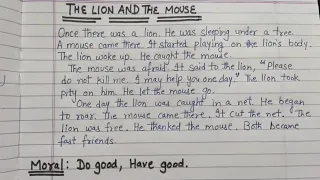 THE LION AND THE MOUSE
Once there was a lion. He was sleeping under a tree.
A mouse came there. It started playing on the lion's body.
The lion woke up. He caught the mouse.
The mouse was afraid. It said to the lion, "Please
do not kill me. I may help you one day." The lion took
pity on him. He let the mouse go.
One day the lion was caught in a net. He began
to roar. The mouse came there. It cut the net. The
lion was free. He thanked the mouse. Both became
fast friends.
Moral: Do good, Have good.